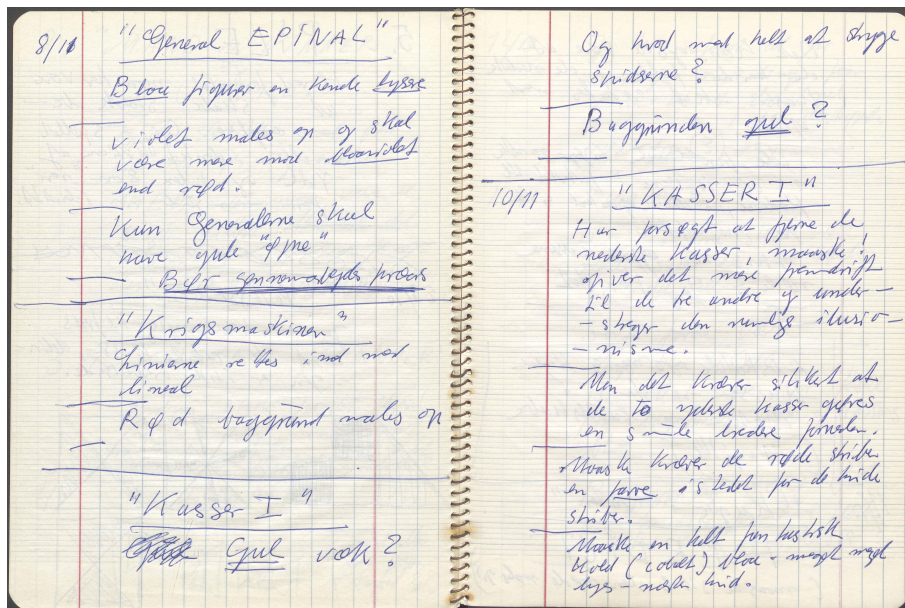 8/11
"General EPINAL"
Blaa figurer en kende lysere
violet males op og skal
være mere mod blaaviolet
end rød.
Kun Generalerne skal
have gule "øjne"
Bør gennemarbejdes præcis
"Krigsmaskinen"
Linierne rettes ind med
lineal
Rød baggrund males op
"Kasser I"
Gul væk?
Og hvad med helt at stryge
spidserne?
Baggrunden gul?
10/11
"KASSER I"
Har forsøgt at fjerne de
nederste kasser, maaske
giver det mere fremdrift
til de tre andre og under-
-streger den rumlige ilusio-
-nisme.
Men det kræver sikkert at
de to yderste kasser gøres
en smule bredere forneden.
Maaske kræver de røde striber
en farve istedet for de hvide
striber.
Maaske en helt fantastisk
kold (cobolt) blaa - meget meget
lys - næsten hvid.